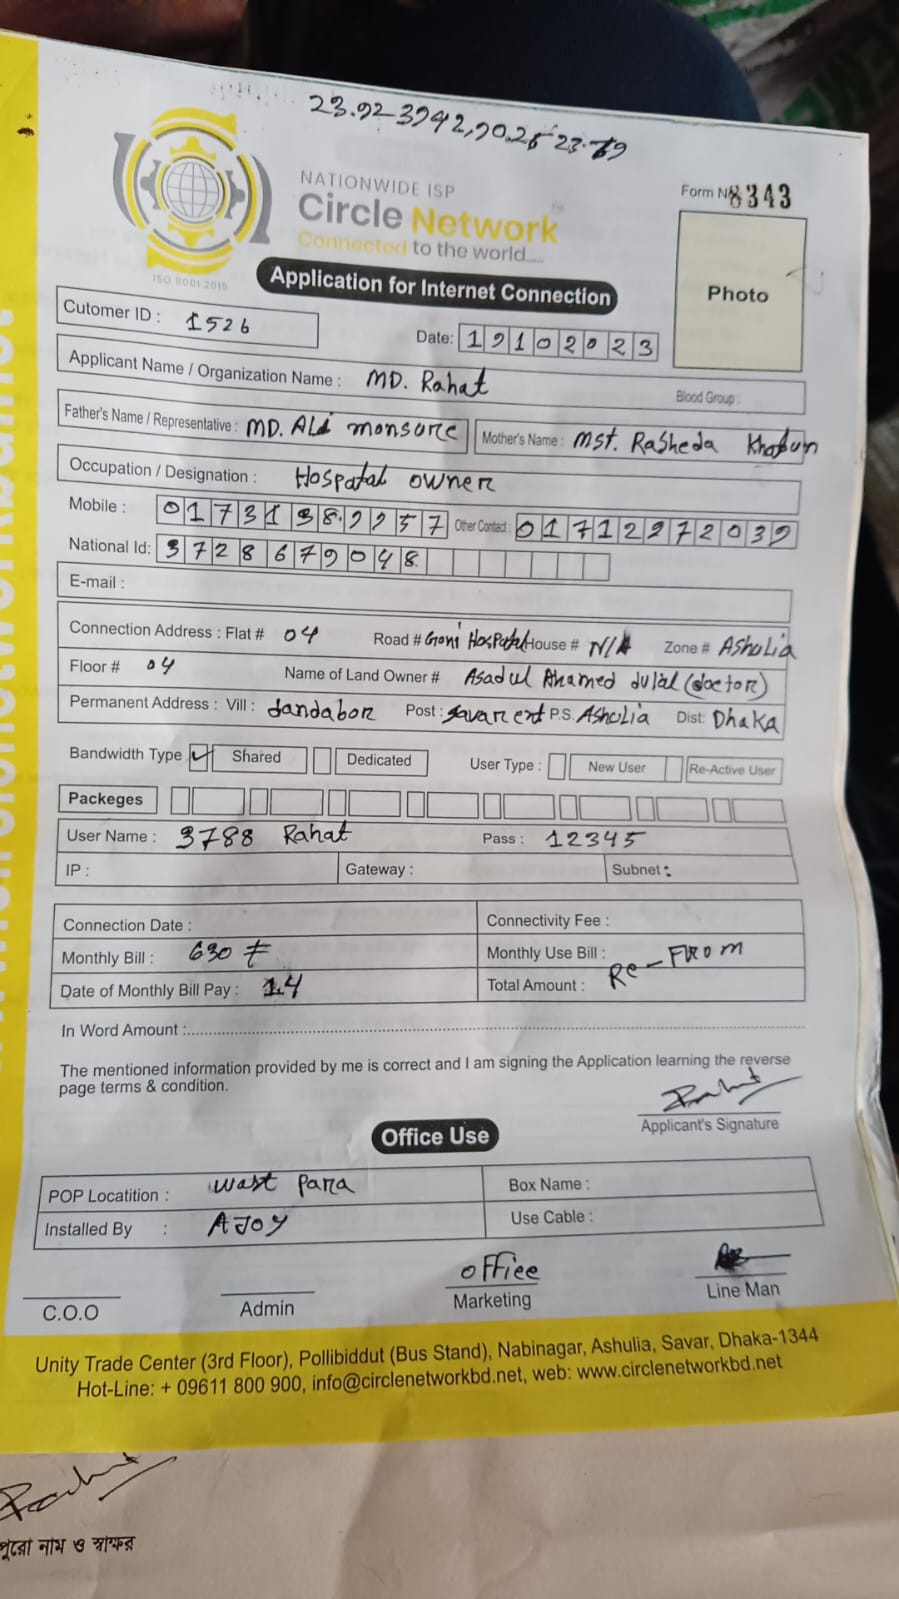 NATIONWIDE ISP
Circle Network
Connected to the world....
ISO 9001:2015
Form N 8343
Photo
Application for Internet Connection
Cutomer ID : 1526
Date: 19102023
Applicant Name / Organization Name : MD. Rahat Blood Group :
Father's Name / Representative : MD. ALi monsure Mother's Name : Mst. Rasheda Khatun
Occupation / Designation : Hospatal owner
Mobile : Other Contact : 01712972039
National Id: 3728679048
E-mail :
Connection Address : Flat # 04 Road # Goni Hospatal House # N/A Zone # Ashulia
Floor # 04 Name of Land Owner # Asadul Ahamed dulal (doctor)
Permanent Address : Vill : dandabor Post : savar ent P.S. Ashulia Dist: Dhaka
Bandwidth Type ✓ Shared Dedicated User Type : New User Re-Active User
Packeges
User Name : 3788 Rahat Pass : 12345
IP : Gateway : Subnet :
Connection Date : Connectivity Fee :
Monthly Bill : 630 ₮ Monthly Use Bill :
Date of Monthly Bill Pay : 14 Total Amount : Re-From
In Word Amount :
The mentioned information provided by me is correct and I am signing the Application learning the reverse
page terms & condition.
Applicant's Signature
Office Use
POP Locatition : wast para Box Name :
Installed By : AJOY Use Cable :
office
C.O.O Admin Marketing Line Man
Unity Trade Center (3rd Floor), Pollibiddut (Bus Stand), Nabinagar, Ashulia, Savar, Dhaka-1344
Hot-Line: + 09611 800 900, info@circlenetworkbd.net, web: www.circlenetworkbd.net
পুরো নাম ও স্বাক্ষর